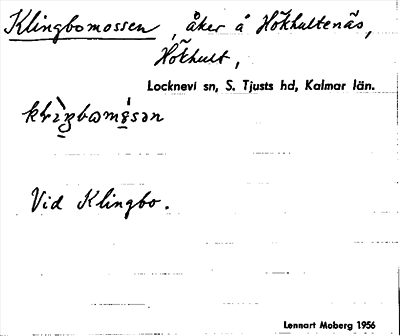 Klingbomossen, åker å Hökhultenäs,
Hökhult,
Locknevi sn, S. Tjusts hd, Kalmar län.
Vid Klingbo.
Lennart Moberg 1956